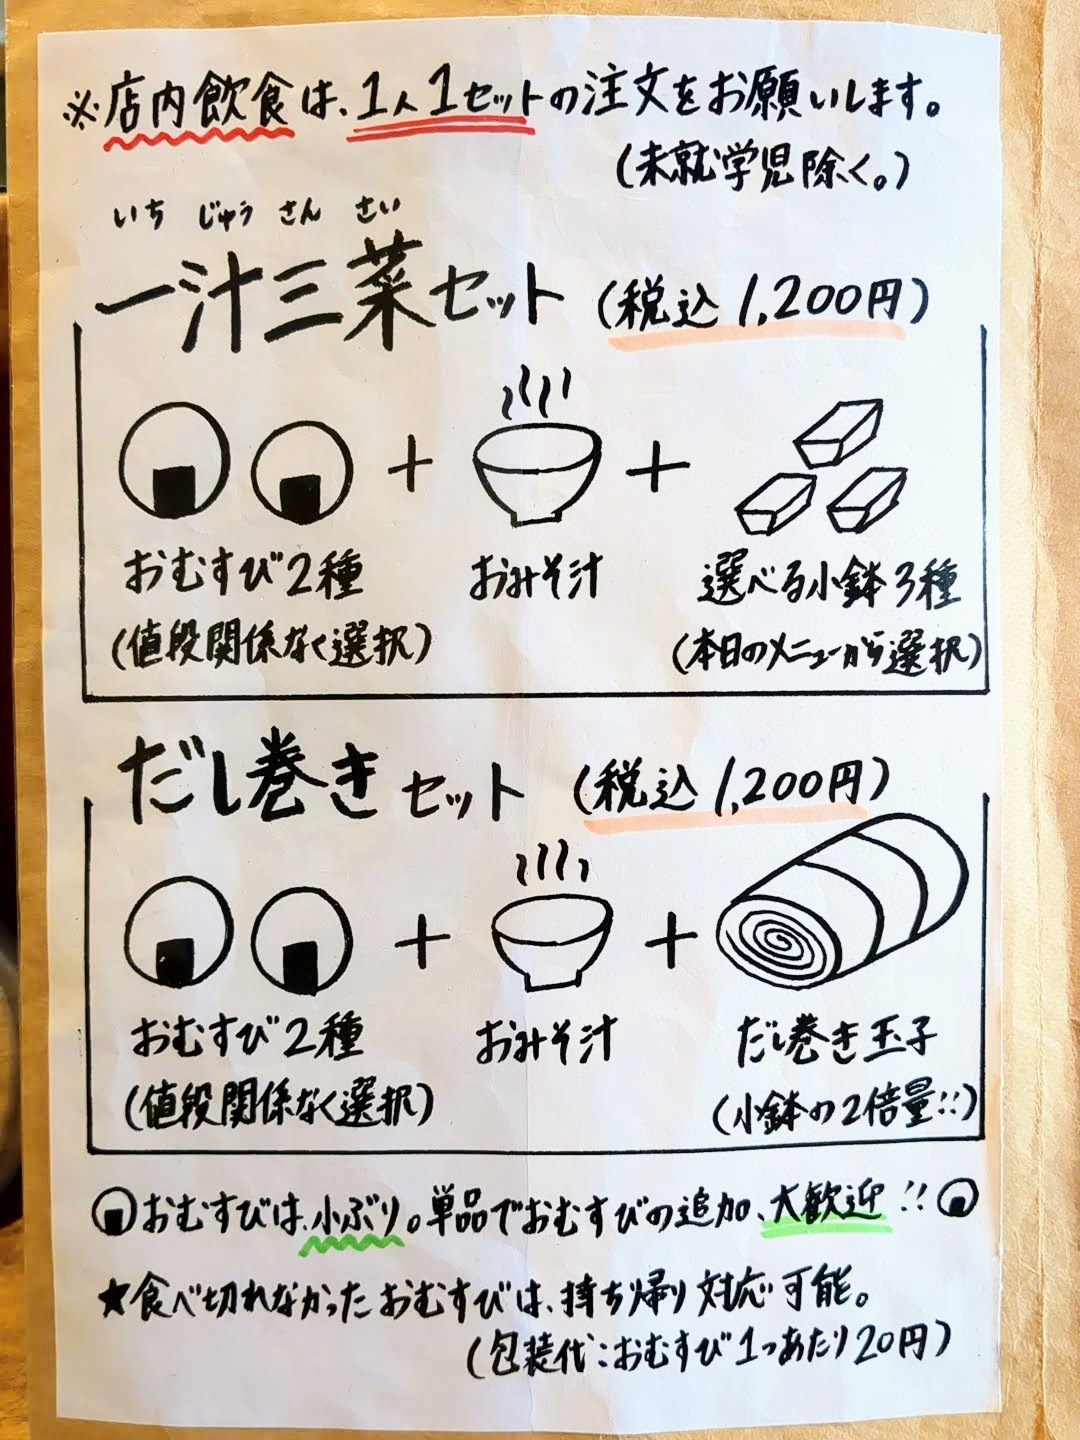 ※店内飲食は、1人1セットの注文をお願いします。
(未就学児除く。)
いち じゅう さん さい
一汁三菜セット (税込 1,200円)
+ +
おむすび2種 おみそ汁 選べる小鉢3種
(値段関係なく選択) (本日のメニューから選択)
だし巻きセット (税込 1,200円)
+ +
おむすび2種 おみそ汁 だし巻き玉子
(値段関係なく選択) (小鉢の2倍量!!)
おむすびは、小ぶり。単品でおむすびの追加、大歓迎!!
★食べ切れなかったおむすびは、持ち帰り対応可能。
(包装代:おむすび1つあたり20円)